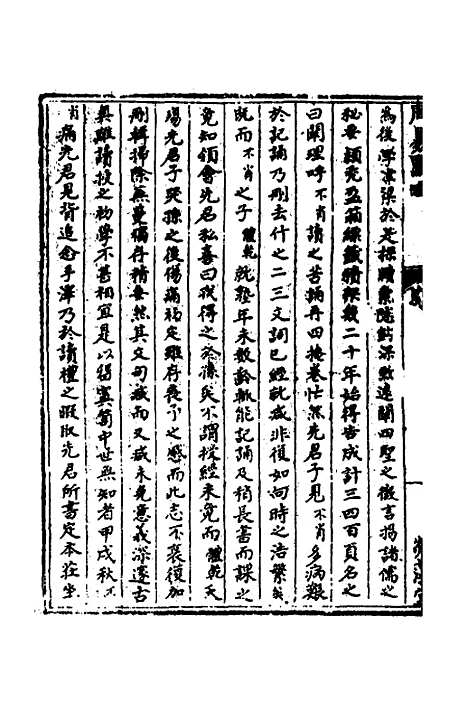 為後學津梁於是探賾索隱鈎深致遠闡四聖之微言揚諸儒之
秘要穎禿盈箱綜覈積探幾二十年始得告成計三四百頁名之
曰闡理呼不肖讀之苦誦再四掩卷茫然先君子見不肖多病艱
於記誦乃刪去什之二三文詞已經就减非復如向時之浩繁矣
既而不肖之子體乾就塾年未數齡輒能記誦及稍長書而課之
竟知領會先君私喜曰我得之矣不謂授經未竟而體乾夭
殤先君子哭孫之後傷痛福定雖存喪予之感而此志不衰復加
刪輯掃除無蔓獨存精要然其文句减而又减未免意義深邃古
奧雖讀授之初學不甚相宜是以錮寘笥中世無知者甲戌秋不
肖痛先君見背追念手澤乃於讀禮之暇取先君所書定本莊坐